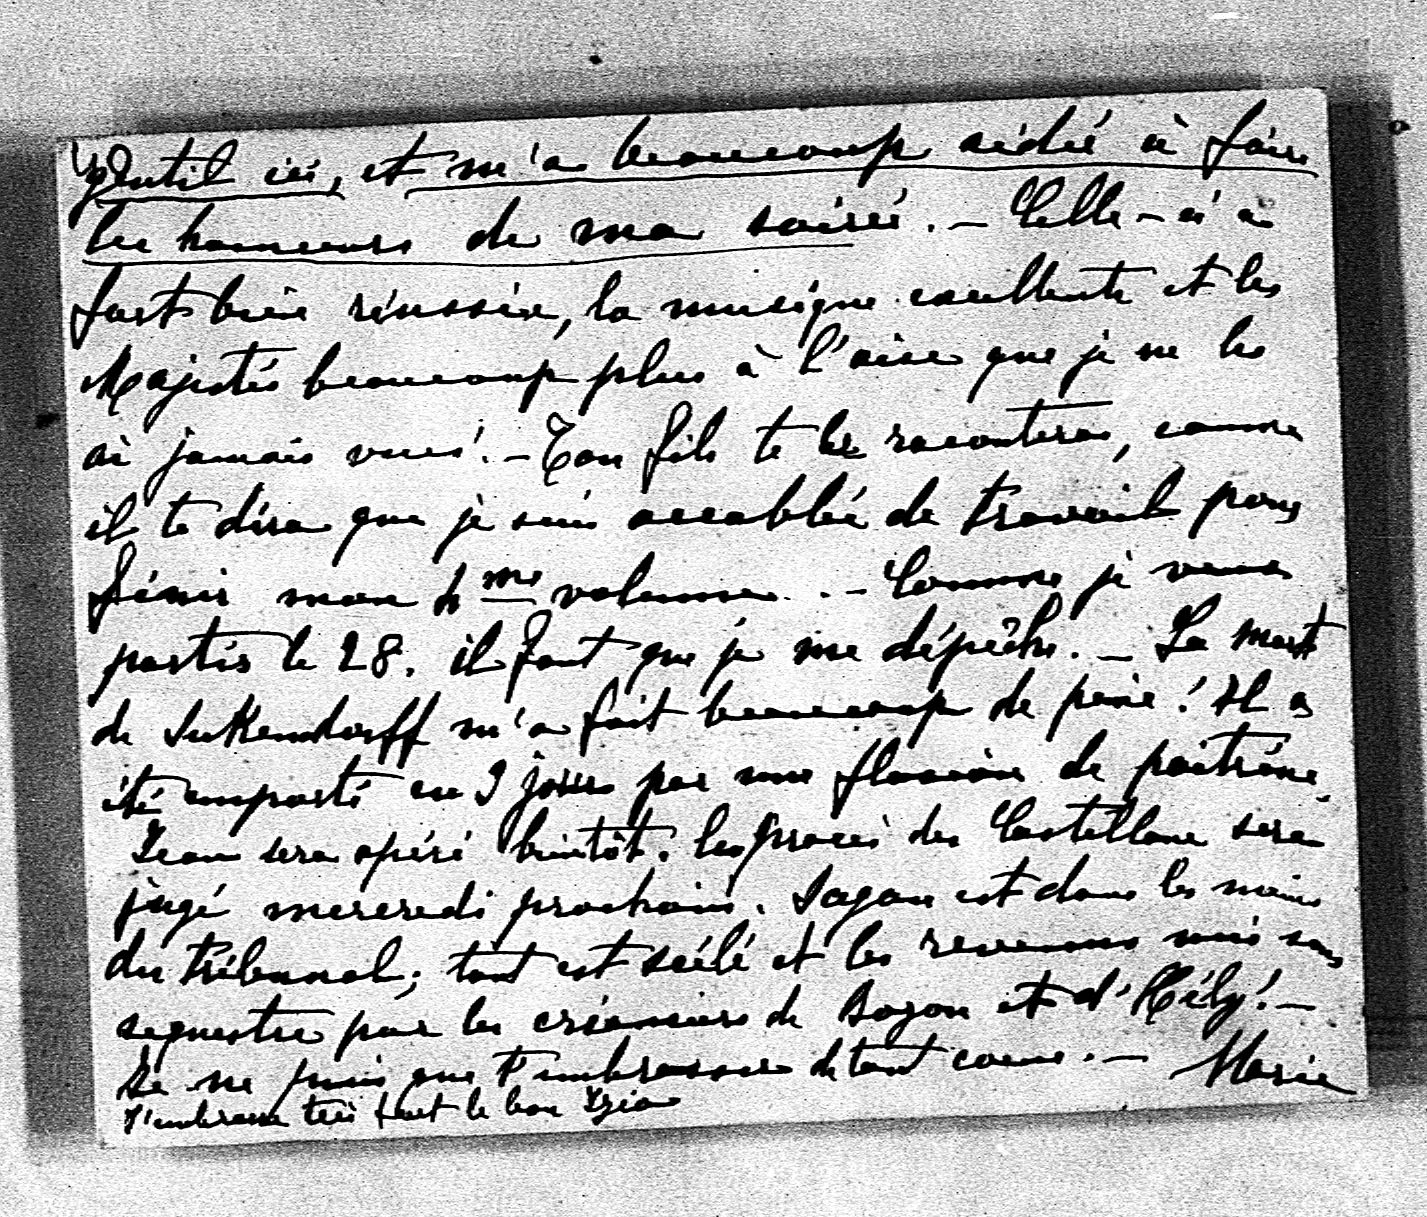 gentil ici, et m'a beaucoup aidée à faire
les honneurs de ma soirée. – Celle-ci a
fort bien réussie, la musique excellente et les
Majestés beaucoup plus à l'aise que je ne les
ai jamais vues! – Ton fils te le racontera, comme
il te dira que je suis accablée de travail pour
finir mon 4me volume. – Comme je veux
partir le 28. il faut que je me dépêche. – La mort
de Sukendorff m'a fait beaucoup de peine! Il a
été emporté en 9 jours par une fluxion de poitrine.
Jean sera opéré bientôt. Les procès des Castellane sera
jugé mercredi prochain. Sagan est dans les mains
du tribunal; tout est scélé et les revenus mis sous
sequestre pour les créanciers de Bozon et d'Hély! –
Je ne puis que t'embrasser de tout coeur. – Marie
J'embrasse très fort le bon